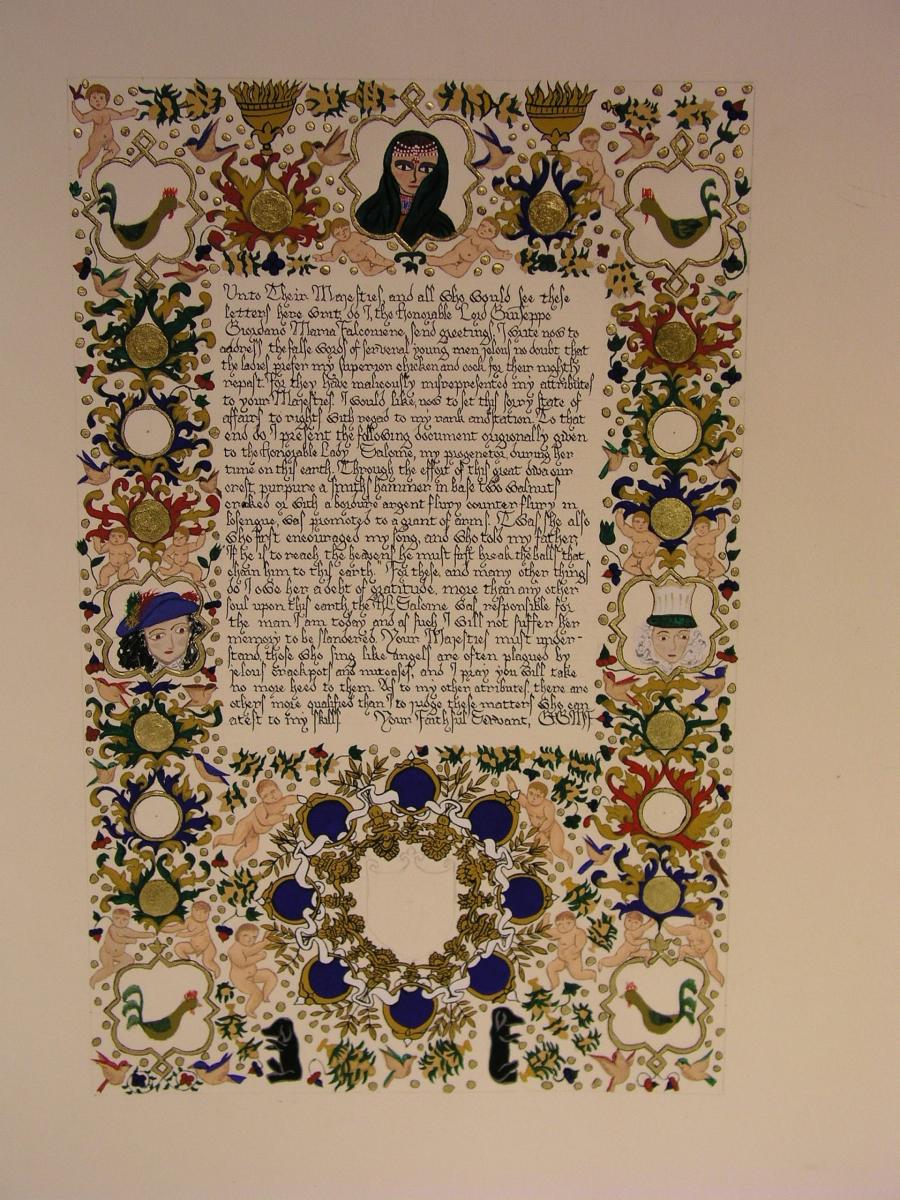 Unto Their Majesties, and all who would see these
letters here writ do I, the Honorable Lord Giuseppe
Giordano Maria Falconiere, send greetings. I write now to
address the false words of serveral young men jelous no doubt that
the ladies prefer my superior chicken and cock for their nightly
repast. For they have maliously misrepresented my attributes
to your Majesties. I would like, now to set this sorry state of
affairs to rights with regad to my rank and station. To that
end do I present the following document origionally given
to the Honorable Lady Salome, my progenetor, during her
time on this earth. Through the effort of this great diva our
crest, purpure a smiths hammer in base two walnuts
cracked or with a bordure argent flury counter flury in
losengue, was promoted to a grant of arms. T'was she also
who first encouraged my song, and who told my father,
"If he is to reach the heavens he must first break the balls that
chain him to this earth." For these, and many other things
do I owe her a debt of gratitude, more than any other
soul upon this earth, the HL Salome was responsible for
the man I am today and as such I will not suffer her
memory to be slandered. Your Majesties must under-
stand, those who sing like angels are often plagued by
jelous crackpots and nutcases, and I pray you will take
no more heed to them. As to my other atributes, there are
others more qualified than I to judge these matters who can
atest to my skills Your Faithful Servant, GGMF